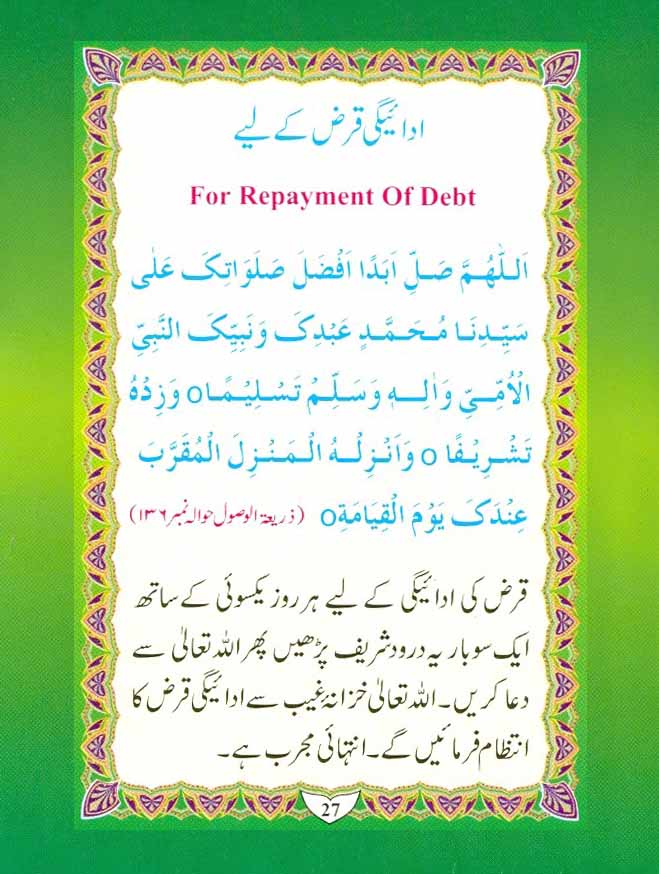 ادائیگی قرض کے لیے
For Repayment Of Debt
اَللّٰهُمَّ صَلِّ اَبَدًا اَفْضَلَ صَلَوَاتِکَ عَلٰی
سَیِّدِنَا مُحَمَّدٍ عَبْدِکَ وَنَبِیِّکَ النَّبِیِّ
الْاُمِّیِّ وَاٰلِهٖ وَسَلِّمْ تَسْلِیْمًاo وَزِدْهُ
تَشْرِیْفًا o وَاَنْزِلْهُ الْمَنْزِلَ الْمُقَرَّبَ
عِنْدَکَ یَوْمَ الْقِیَامَةِo (ذریعۃ الوصول حوالہ نمبر ۱۳۶)
قرض کی ادائیگی کے لیے ہر روز یکسوئی کے ساتھ
ایک سو بار یہ درود شریف پڑھیں پھر اللہ تعالیٰ سے
دعا کریں۔ اللہ تعالیٰ خزانۂ غیب سے ادائیگی قرض کا
انتظام فرمائیں گے۔ انتہائی مجرب ہے۔
27